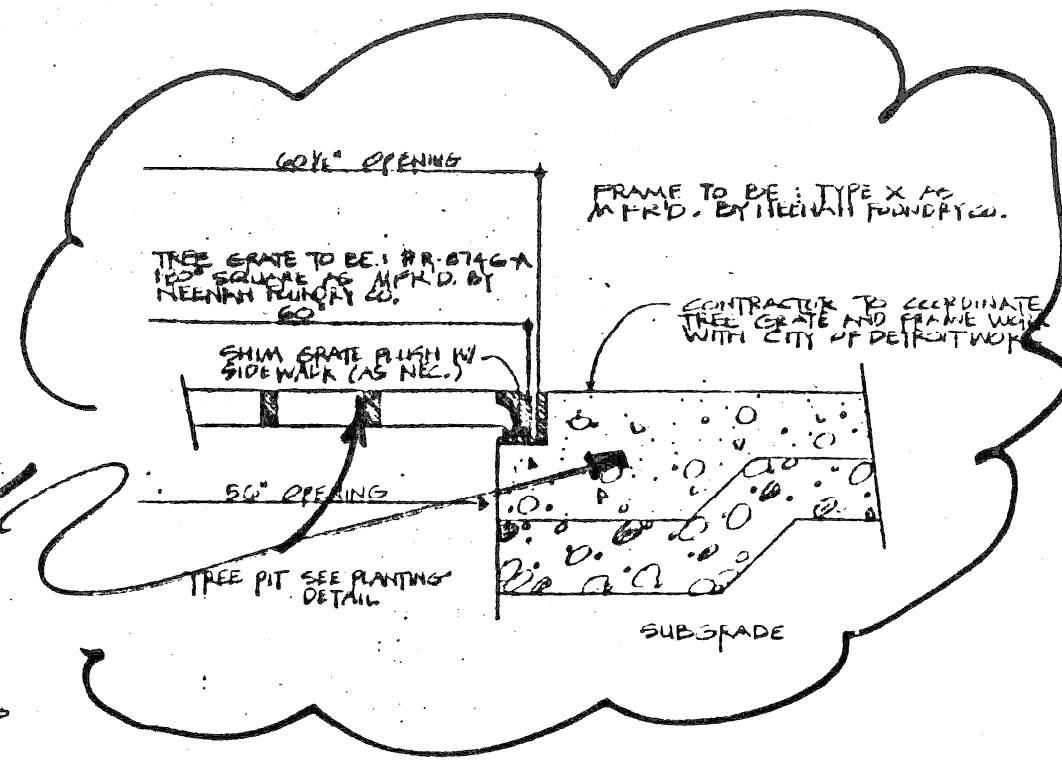 60½" OPENING
FRAME TO BE: TYPE X AS
MFR'D. BY NEENAH FOUNDRY CO.
TREE GRATE TO BE: #R-8746-A
SQUARE AS MFR'D. BY
NEENAH FOUNDRY CO.
60"
CONTRACTOR TO COORDINATE
TREE GRATE AND FRAME
WITH CITY OF DETROIT
SHIM GRATE FLUSH W/
SIDEWALK (AS NEC.)
56" OPENING
TREE PIT SEE PLANTING
DETAIL
SUBGRADE